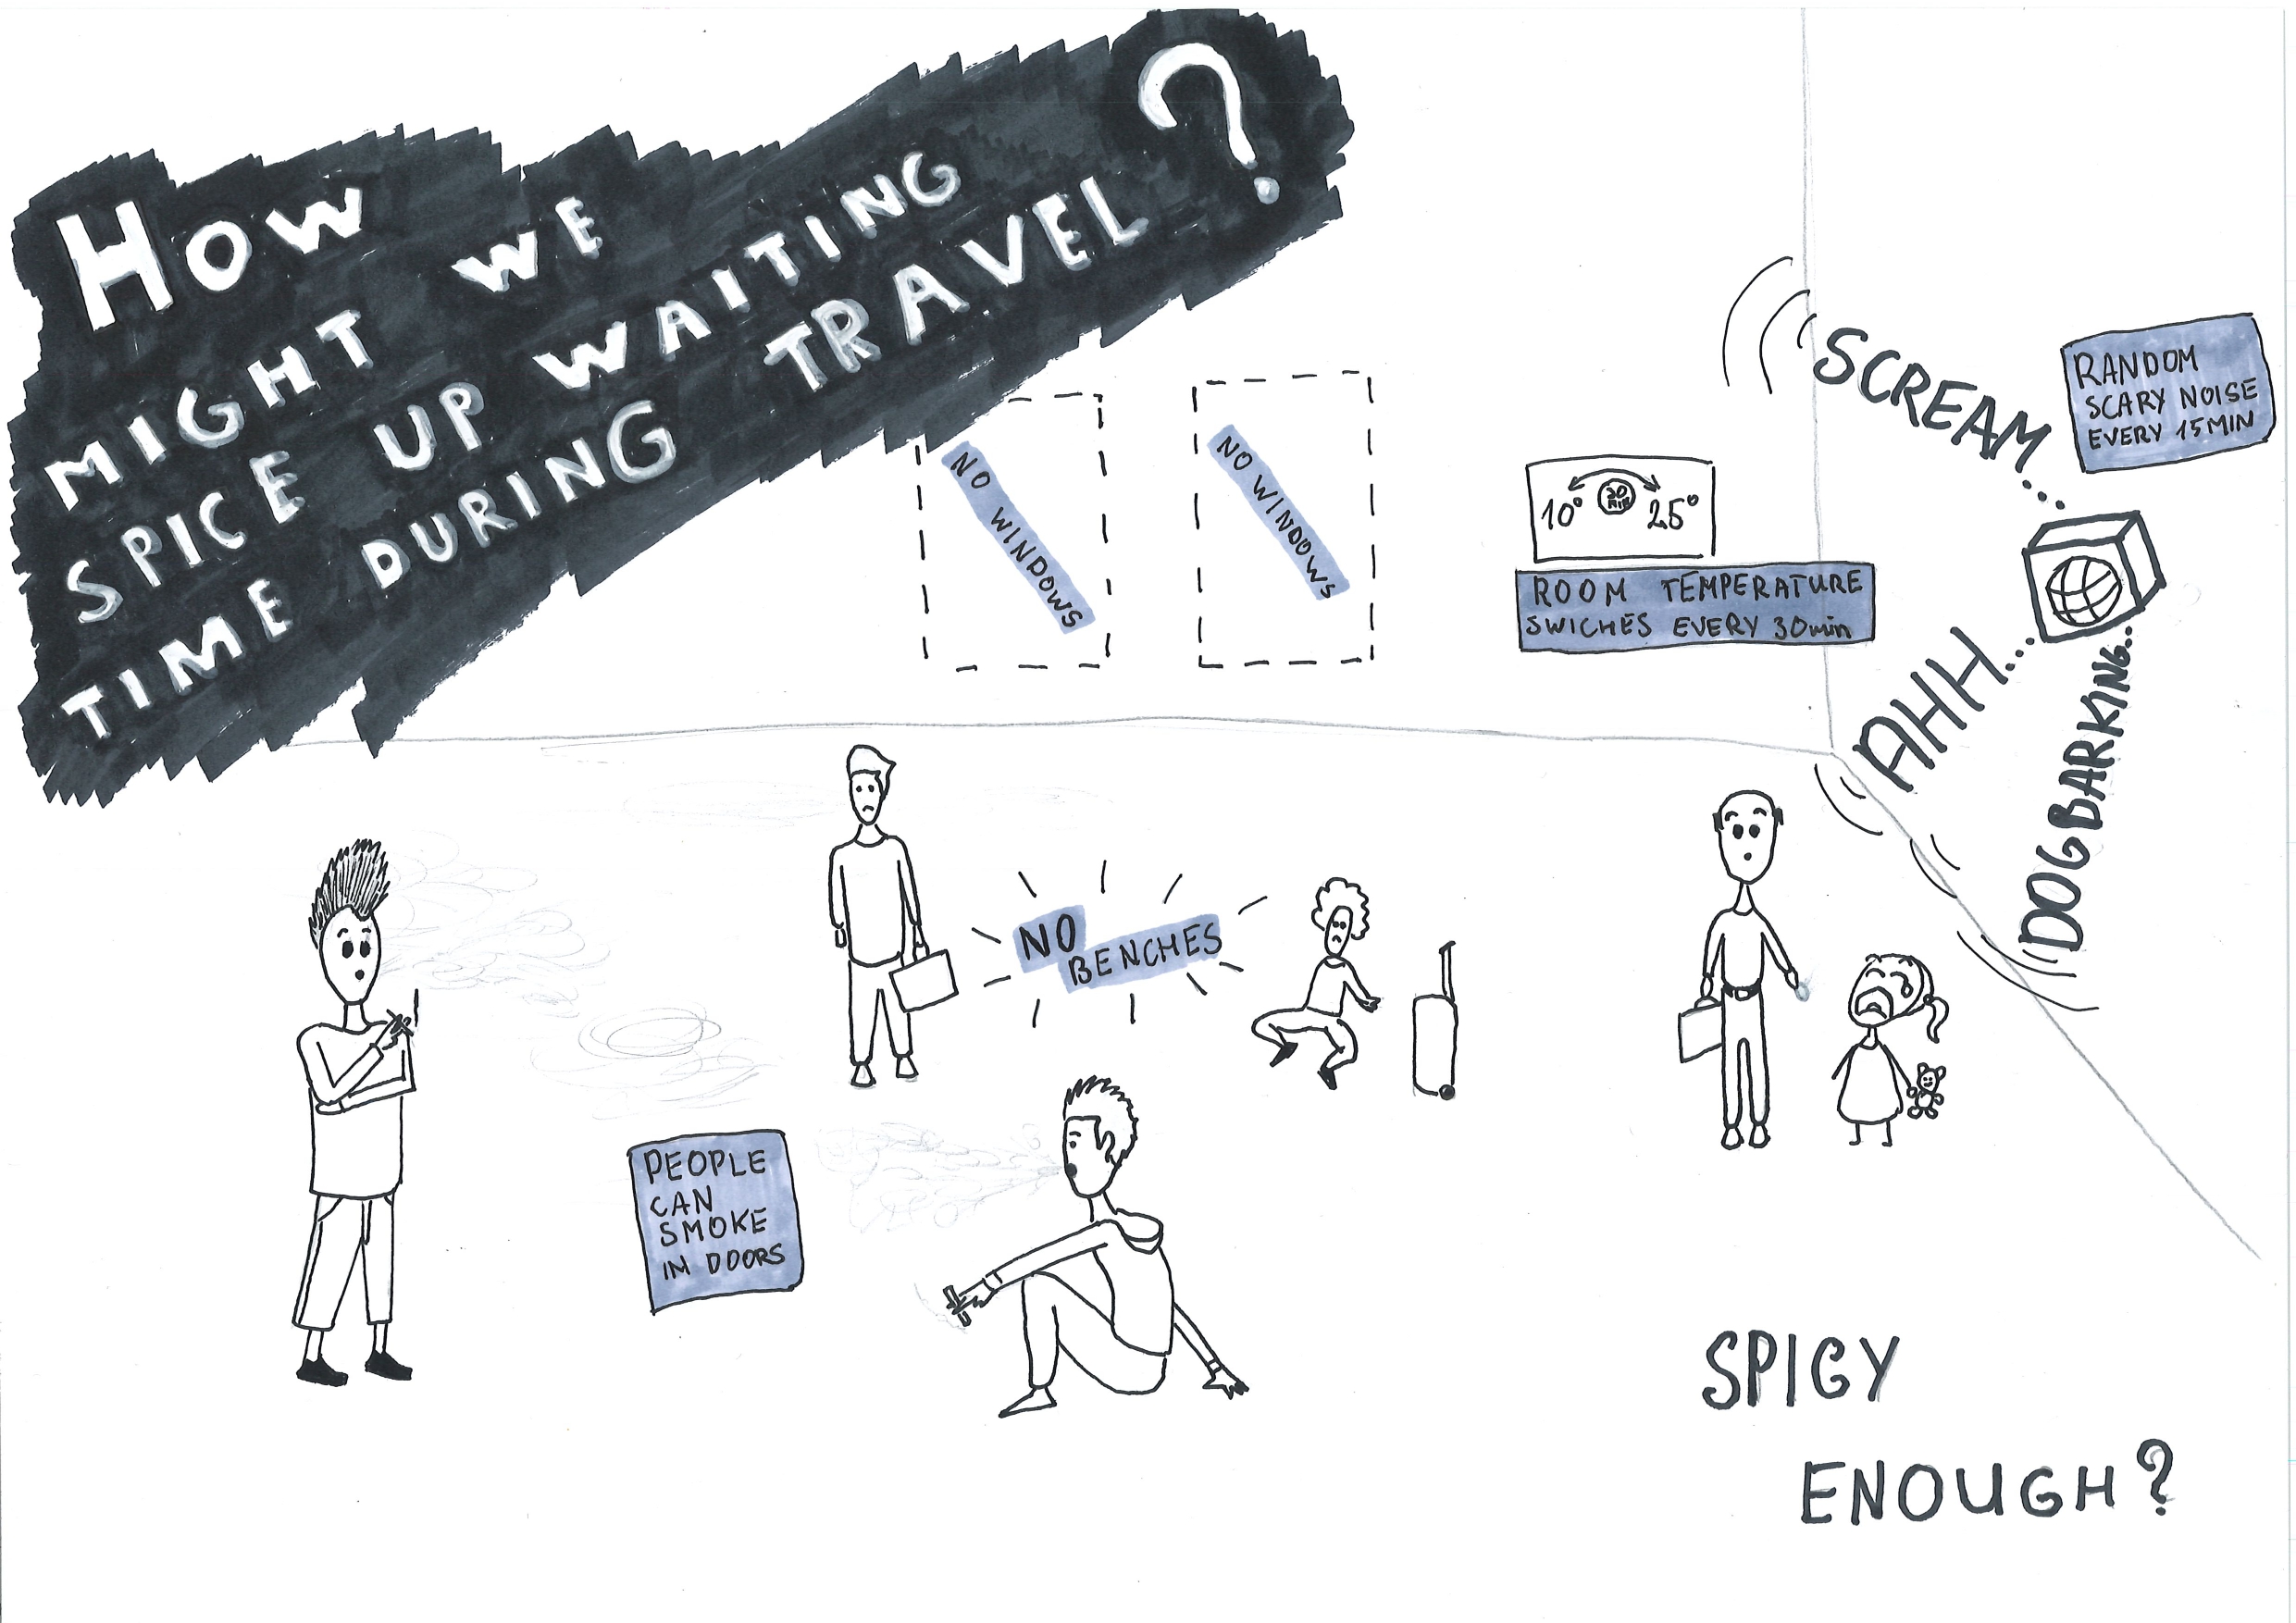 HOW
MIGHT WE
SPICE UP WAITING
TIME DURING TRAVEL?
NO WINDOWS
NO WINDOWS
10° 30 MIN 25°
ROOM TEMPERATURE
SWICHES EVERY 30min
SCREAM...
RANDOM
SCARY NOISE
EVERY 15MIN
AHH...
DOG BARKING...
NO
BENCHES
PEOPLE
CAN
SMOKE
IN DOORS
SPICY
ENOUGH?